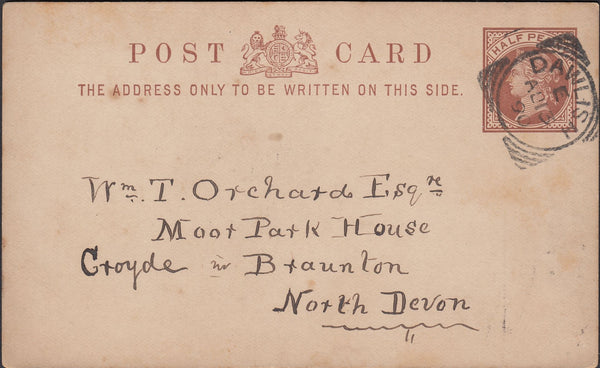 POST CARD
THE ADDRESS ONLY TO BE WRITTEN ON THIS SIDE.
HALF PENNY
DAWLISH
E
90
Wm. T. Orchard Esqre
Moor Park House
Croyde in Braunton
North Devon